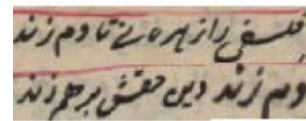 فلسفی را زہرہ نے تا دم زند
دم زند دین حقش برہم زند